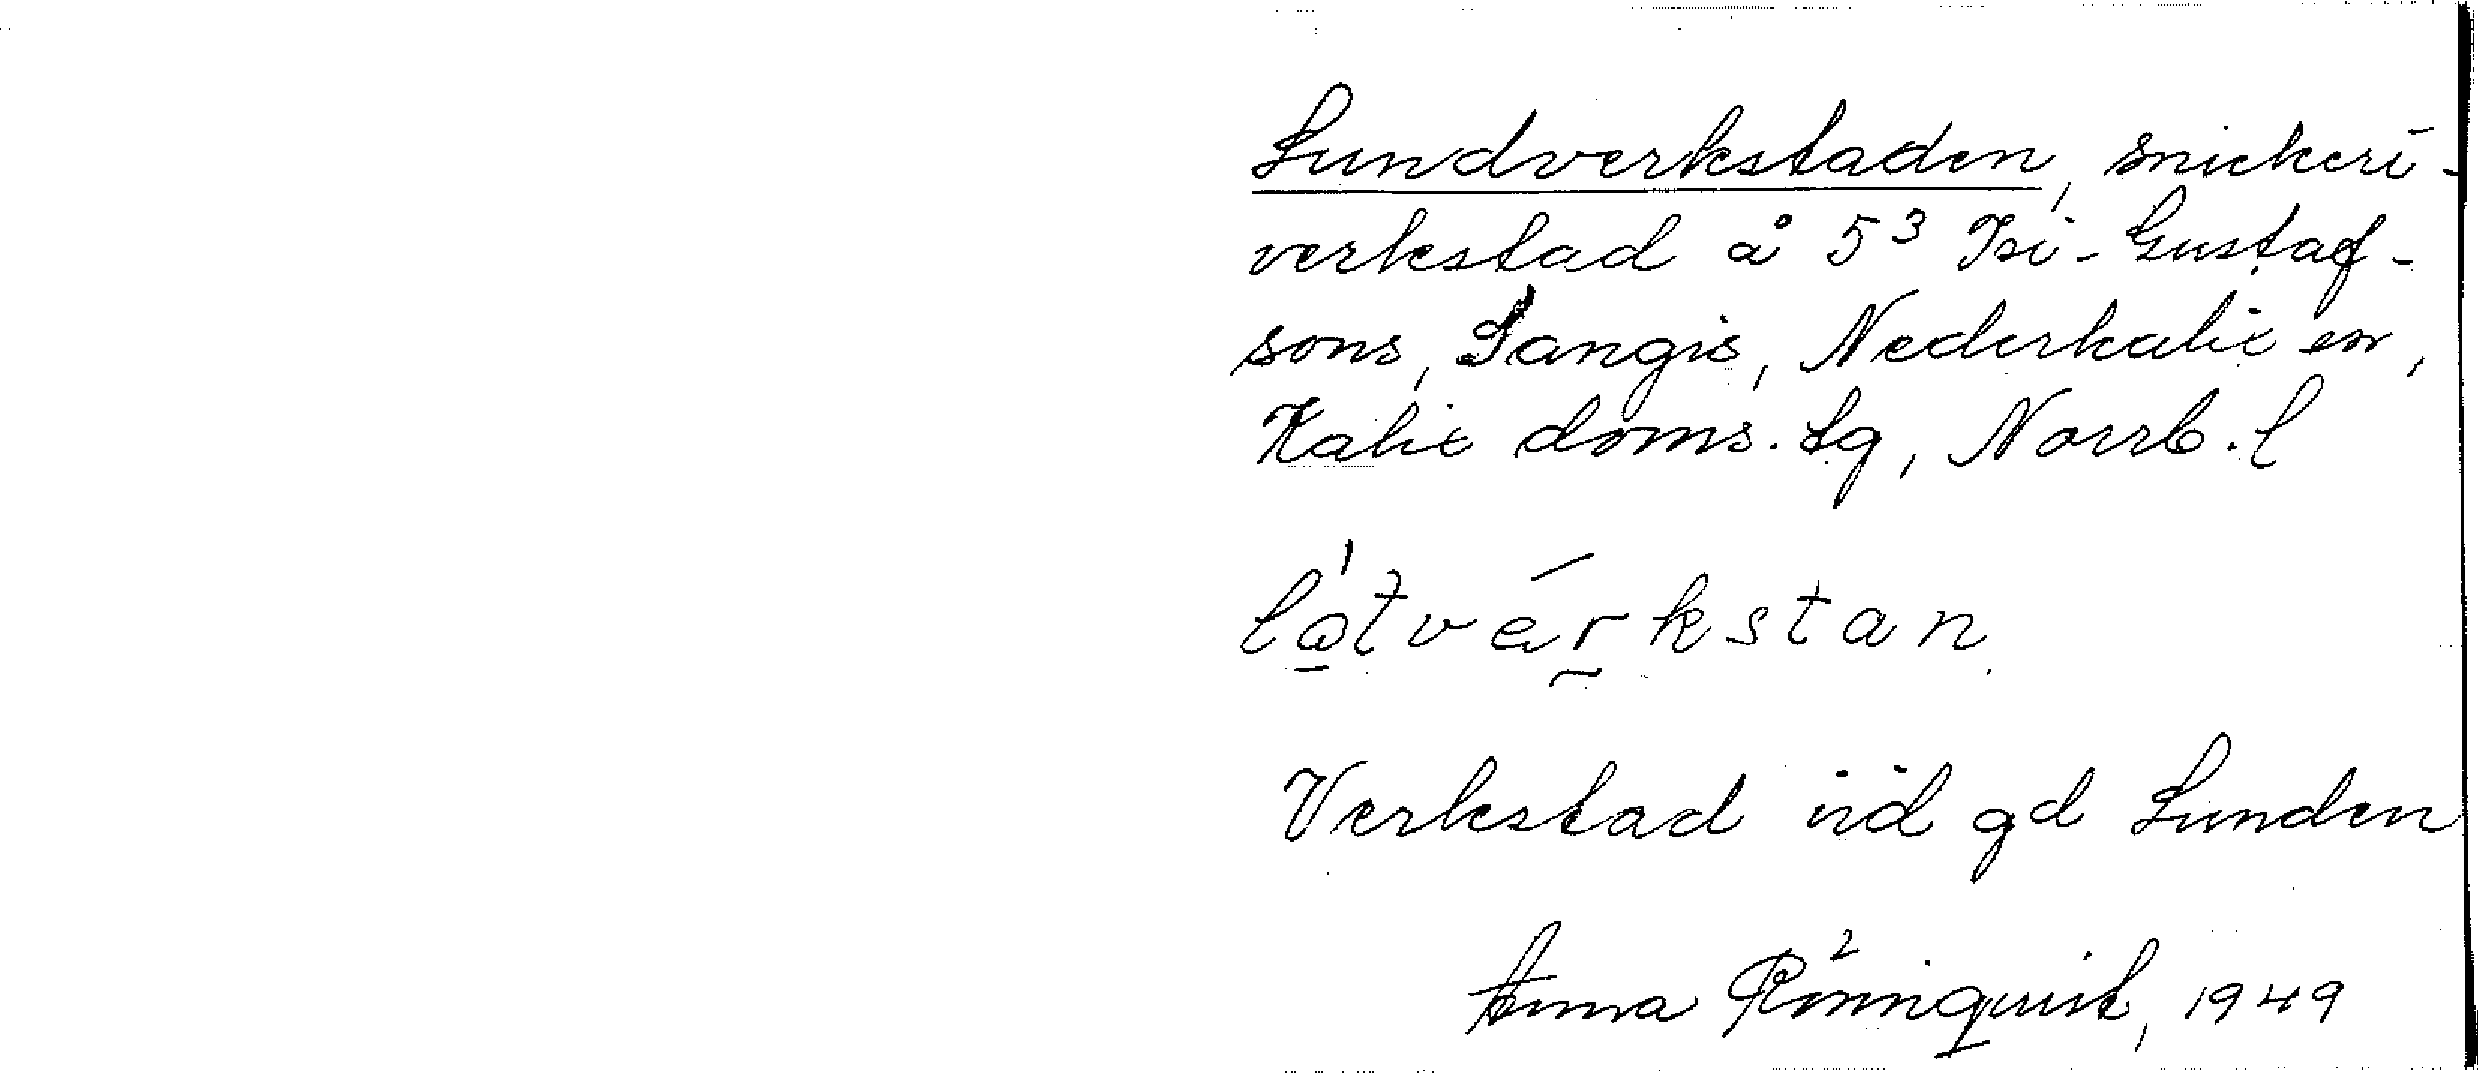 Lundverkstaden, snickeri-
verkstad å 5³ Isi-Gustaf-
sons, Sangis, Nederkalix sn,
Kalix doms. tg, Norrb. l
Verkstad vid gd Lunden
Anna Rönnquist, 1949